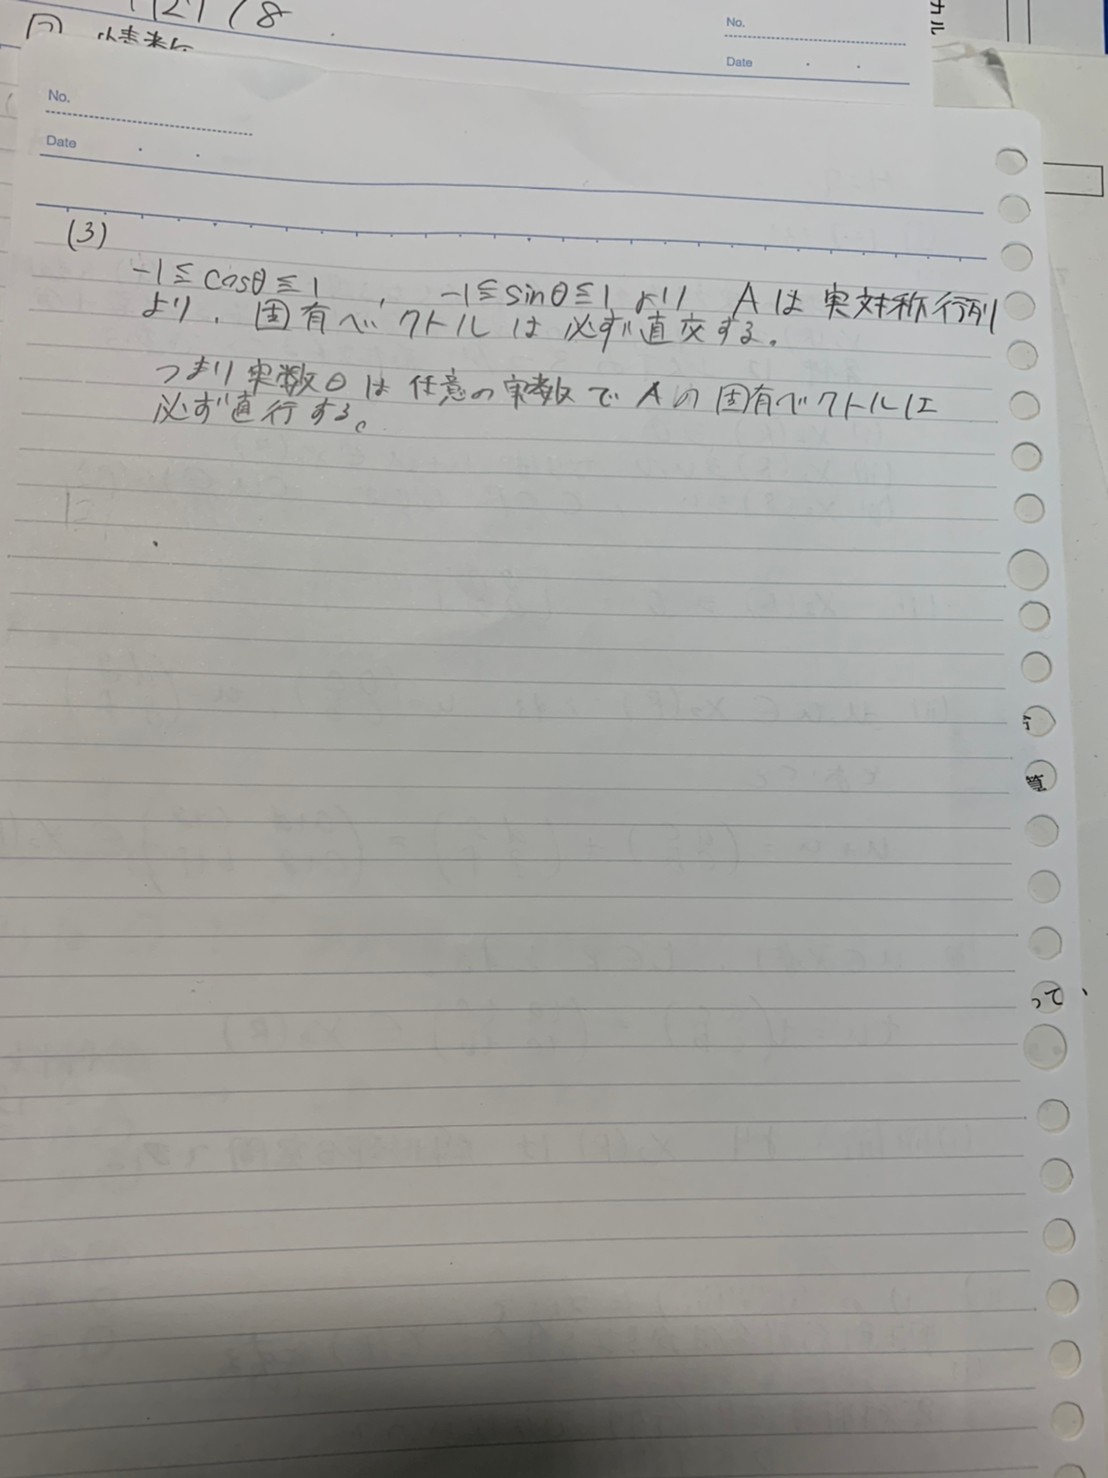 (2) 18
No.
Date
No.
Date
(3)
-1≦cosθ≦1 , -1≦sinθ≦1 より Aは実対称行列
より、固有ベクトルは必ず直交する。
つまり実数θは任意の実数でAの固有ベクトルは
必ず直行する。
算
って、